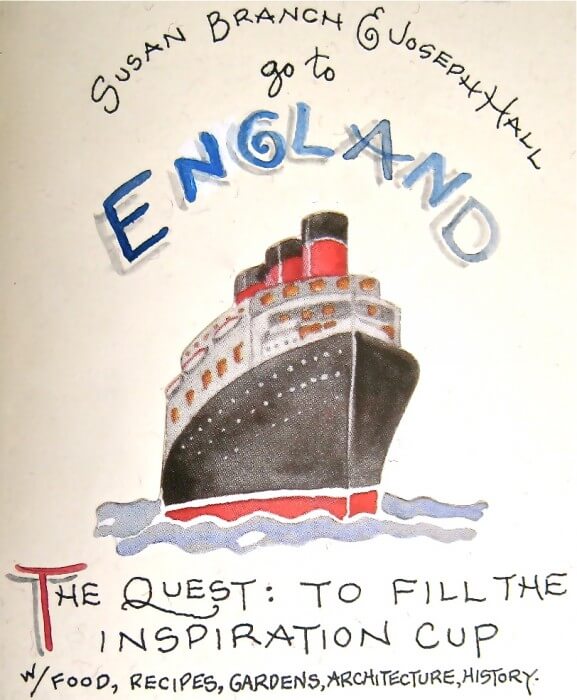 SUSAN BRANCH & JOSEPH HALL
go to
ENGLAND
THE QUEST: TO FILL THE
INSPIRATION CUP
W/ FOOD, RECIPES, GARDENS, ARCHITECTURE, HISTORY.